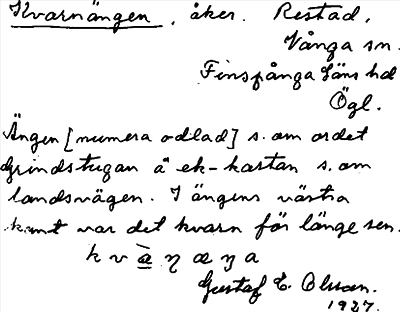 Kvarnängen, åker. Restad,
Vånga sn.
Finspånga läns hd
Ögl.
Ängen [numera odlad] s. om ordet
Grindstugan å ek-kartan s. om
landsvägen. I ängens västra
kant var det kvarn för länge sen.
k v à ŋ æ ŋ a
Gustaf E. Olsson.
1927.